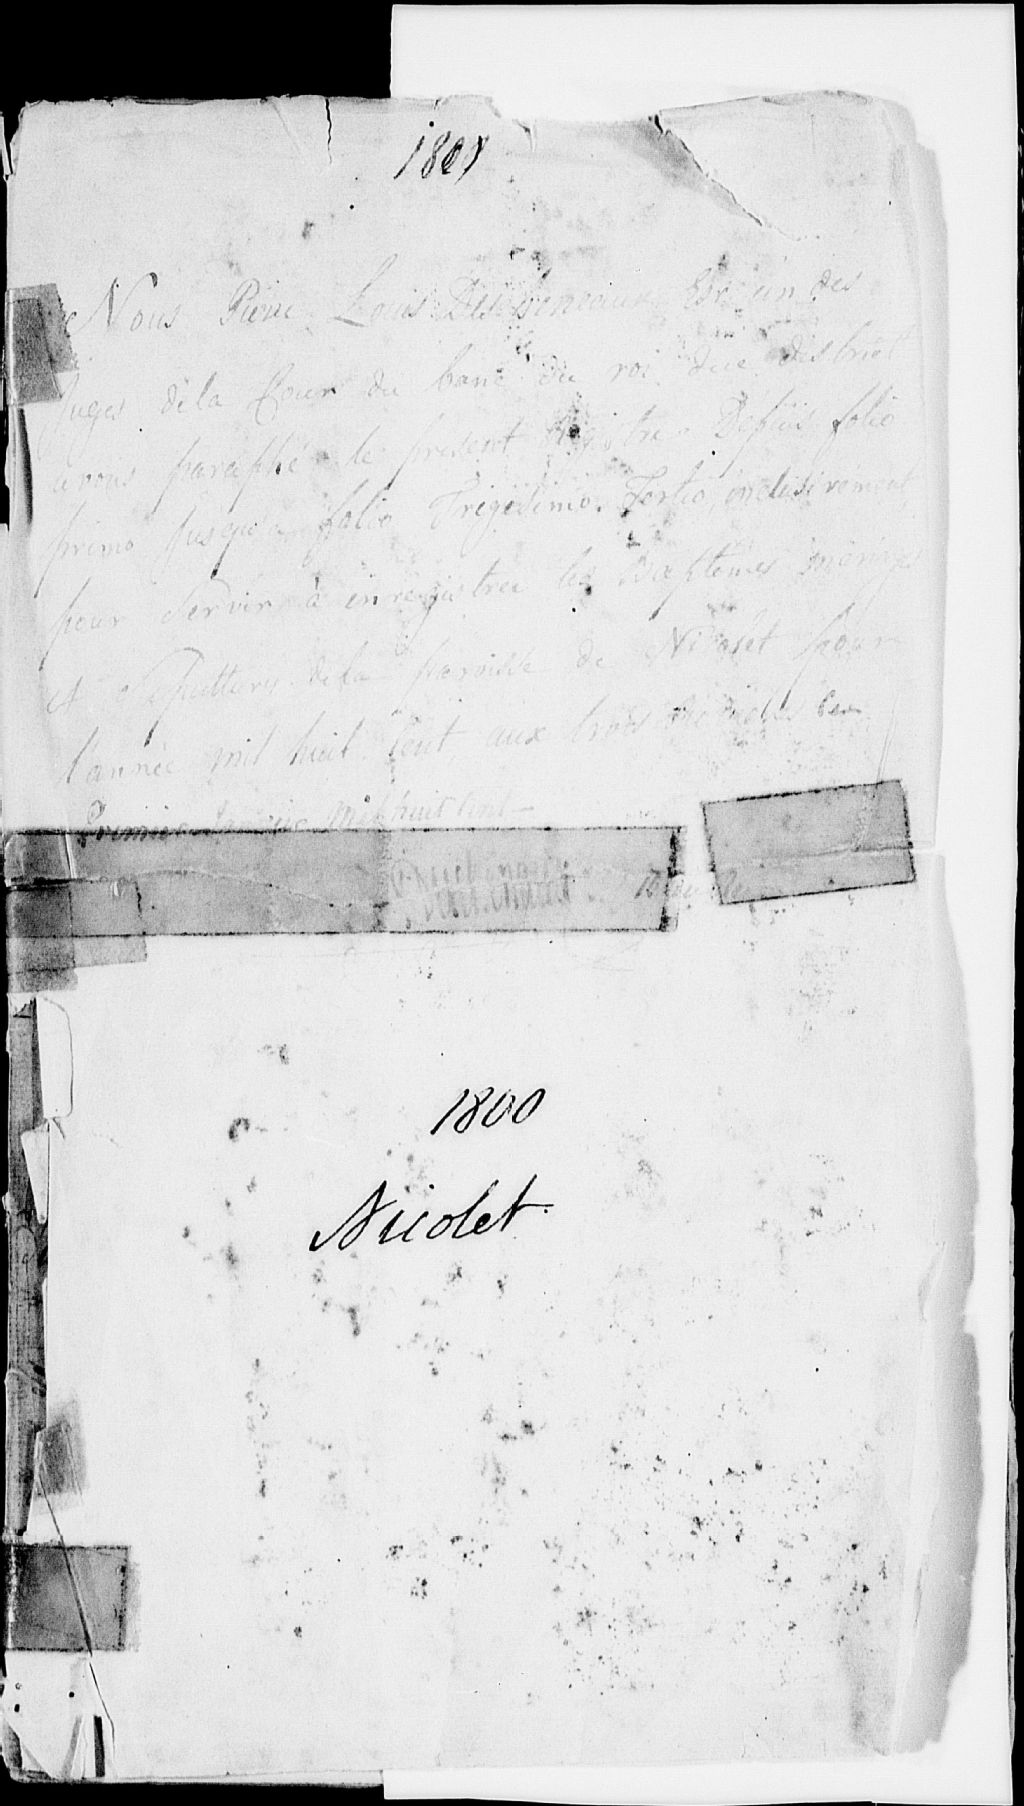 1801
Nous Pierre Louis Descheneaux Ecr un des
Juges dela Cour du banc du roi due district
avons paraphé le present Registre Depuis folio
primo Jusqu'a folio Trigesimo Tertio, inclusivement
pour Servir à enregistrer les Baptemes mariage
et Sepultures dela paroisse de Nicolet pour
l'année mil huit Cent, aux trois Rivieres Ce
Premier Janvier mil huit Cent
1800
Nicolet